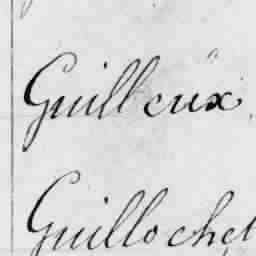 Guilleux
Guillochet